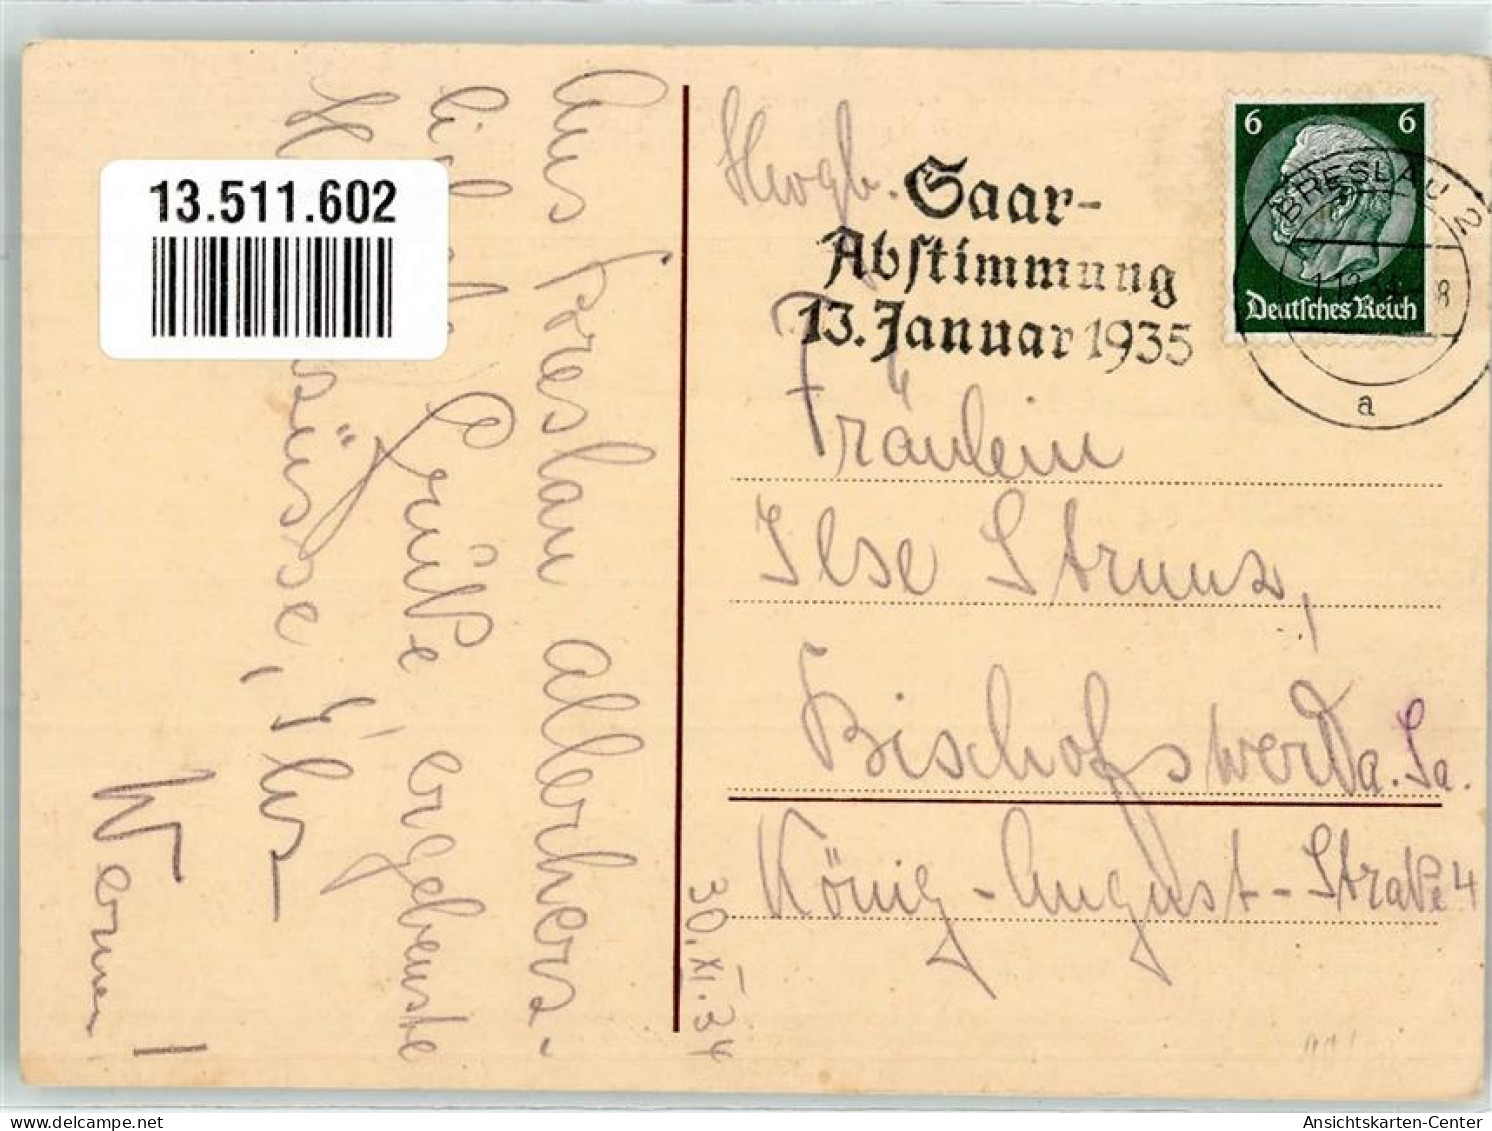 13.511.602
Aus Breslau allerherz-
Grüße, ergebenste
Ihr
Werner!
30.XI.34
Hwgb.
Saar-
Abstimmung
13. Januar 1935
6 6
Deutsches Reich
BRESLAU 2
a
Fräulein
Ilse Strunz,
Bischofswerda. Sa.
König-August-Straße 4
www.delcampe.net
Ansichtskarten-Center